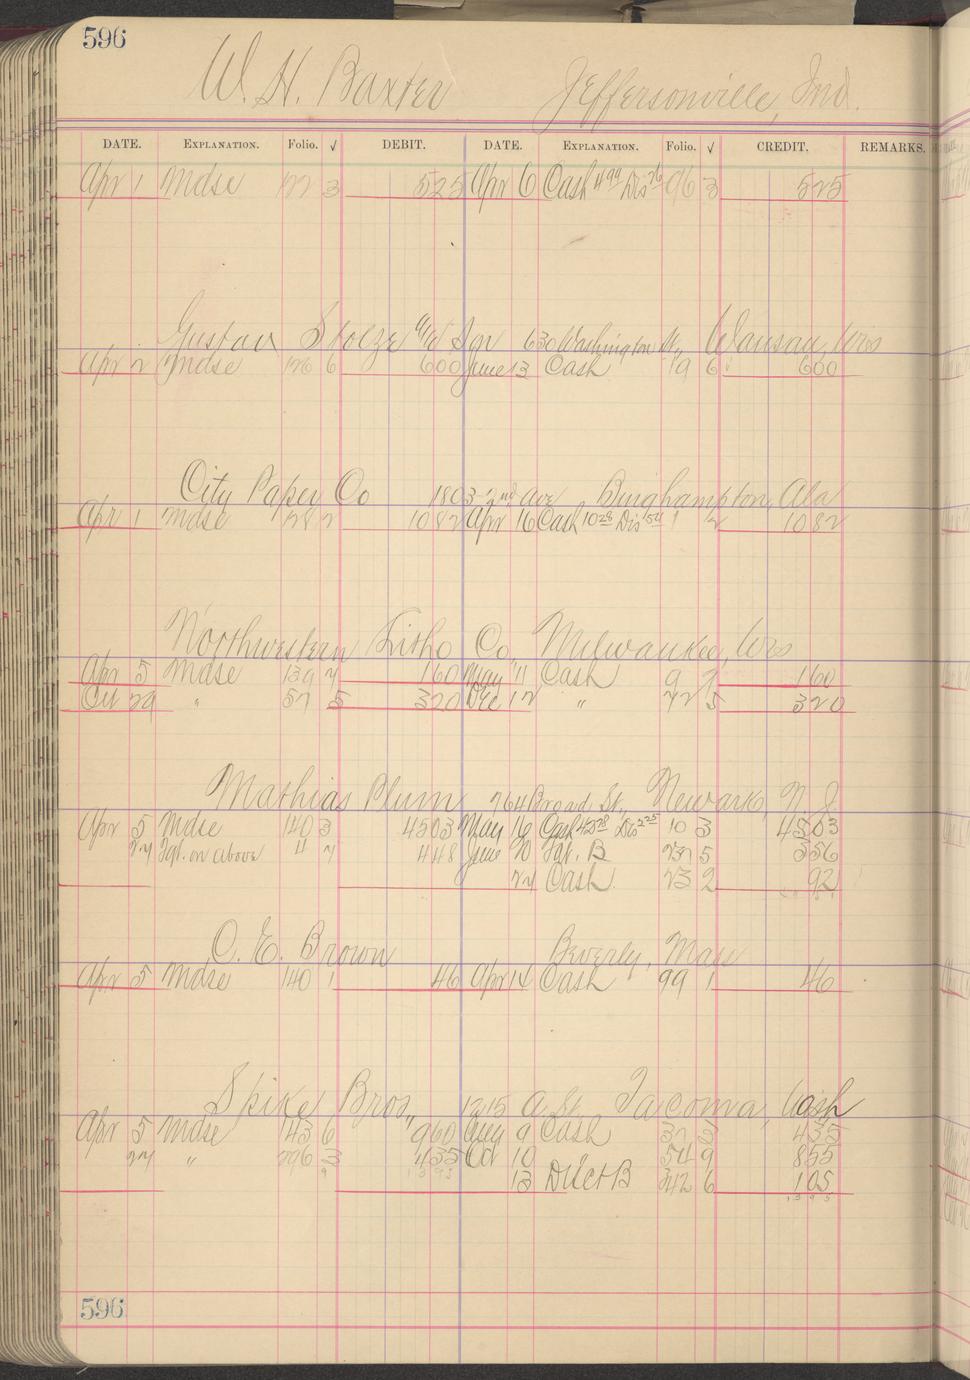 596
W. H. Baxter Jeffersonville, Ind.
DATE. EXPLANATION. Folio. √ DEBIT. DATE. EXPLANATION. Folio. √ CREDIT. REMARKS.
Apr 1 Mdse 122 3 525 Apr 6 Cash 4 99 Dis 26 96 3 525
Gustav Stolze 630 Washington St., Wausau, Wis
Apr 2 Mdse 126 6 600 June 13 Cash 19 6 600
City Paper Co 1803-2nd Ave Binghampton, Ala
Apr 1 Mdse 128 2 1082 Apr 16 Cash 10 28 Dis 54 1 2 1082
Northwestern Litho Co., Milwaukee, Wis
Apr 5 Mdse 139 7 160 May 11 Cash 9 7 160
Oct 29 " 57 5 320 Dec 12 " 72 5 320
Mathias Plum 764 Broad St., Newark, N. J.
Apr 5 Mdse 140 3 4503 May 16 Cash 42 78 Dis 2 25 10 3 4503
27 on above 4 7 448 June 20 B 237 5 356
24 Cash 23 2 92
C. E. Brown Beverly, Mass
Apr 5 Mdse 140 1 46 Apr 14 Cash 99 1 46
Spike Bros., 1215 A St. Tacoma, Wash
Apr 5 Mdse 143 6 960 Aug 9 Cash 37 435
27 " 296 3 435 Oct 10 549 855
13 B 342 6 105
596